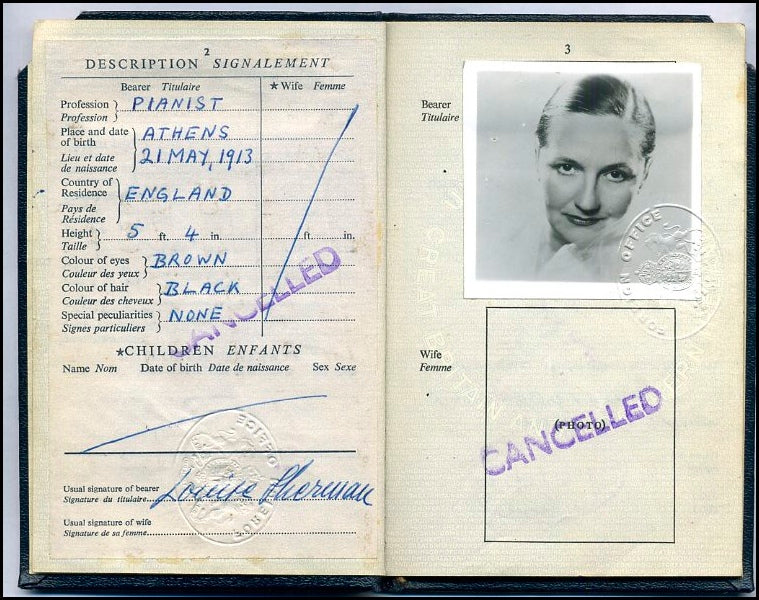 2
DESCRIPTION SIGNALEMENT
Bearer Titulaire ★ Wife Femme
Profession PIANIST
Profession
Place and date of birth ATHENS
Lieu et date de naissance 21 MAY, 1913
Country of Residence ENGLAND
Pays de Résidence
Height 5 ft. 4 in. ft. in.
Taille
Colour of eyes BROWN
Couleur des yeux
Colour of hair BLACK
Couleur des cheveux
Special peculiarities NONE
Signes particuliers
CANCELLED
★CHILDREN ENFANTS
Name Nom Date of birth Date de naissance Sex Sexe
Usual signature of bearer
Signature du titulaire Louise Sherman
Usual signature of wife
Signature de sa femme
3
Bearer
Titulaire
OFFICE
Wife
Femme
(PHOTO)
CANCELLED